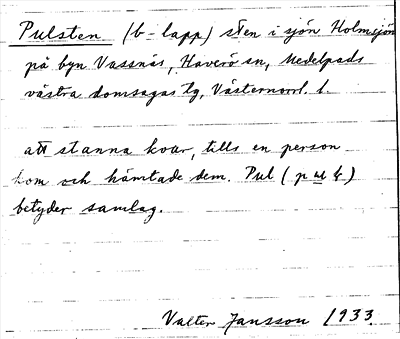 Pulsten (b-lapp) sten i sjön Holmsjön
på byn Vassnäs, Haverö sn, Medelpads
västra domsagas tg, Västernorrl. l.
att stanna kvar, tills en person
kom och hämtade dem. Pul (p ul k)
betyder samlag.
Valter Jansson 1933.